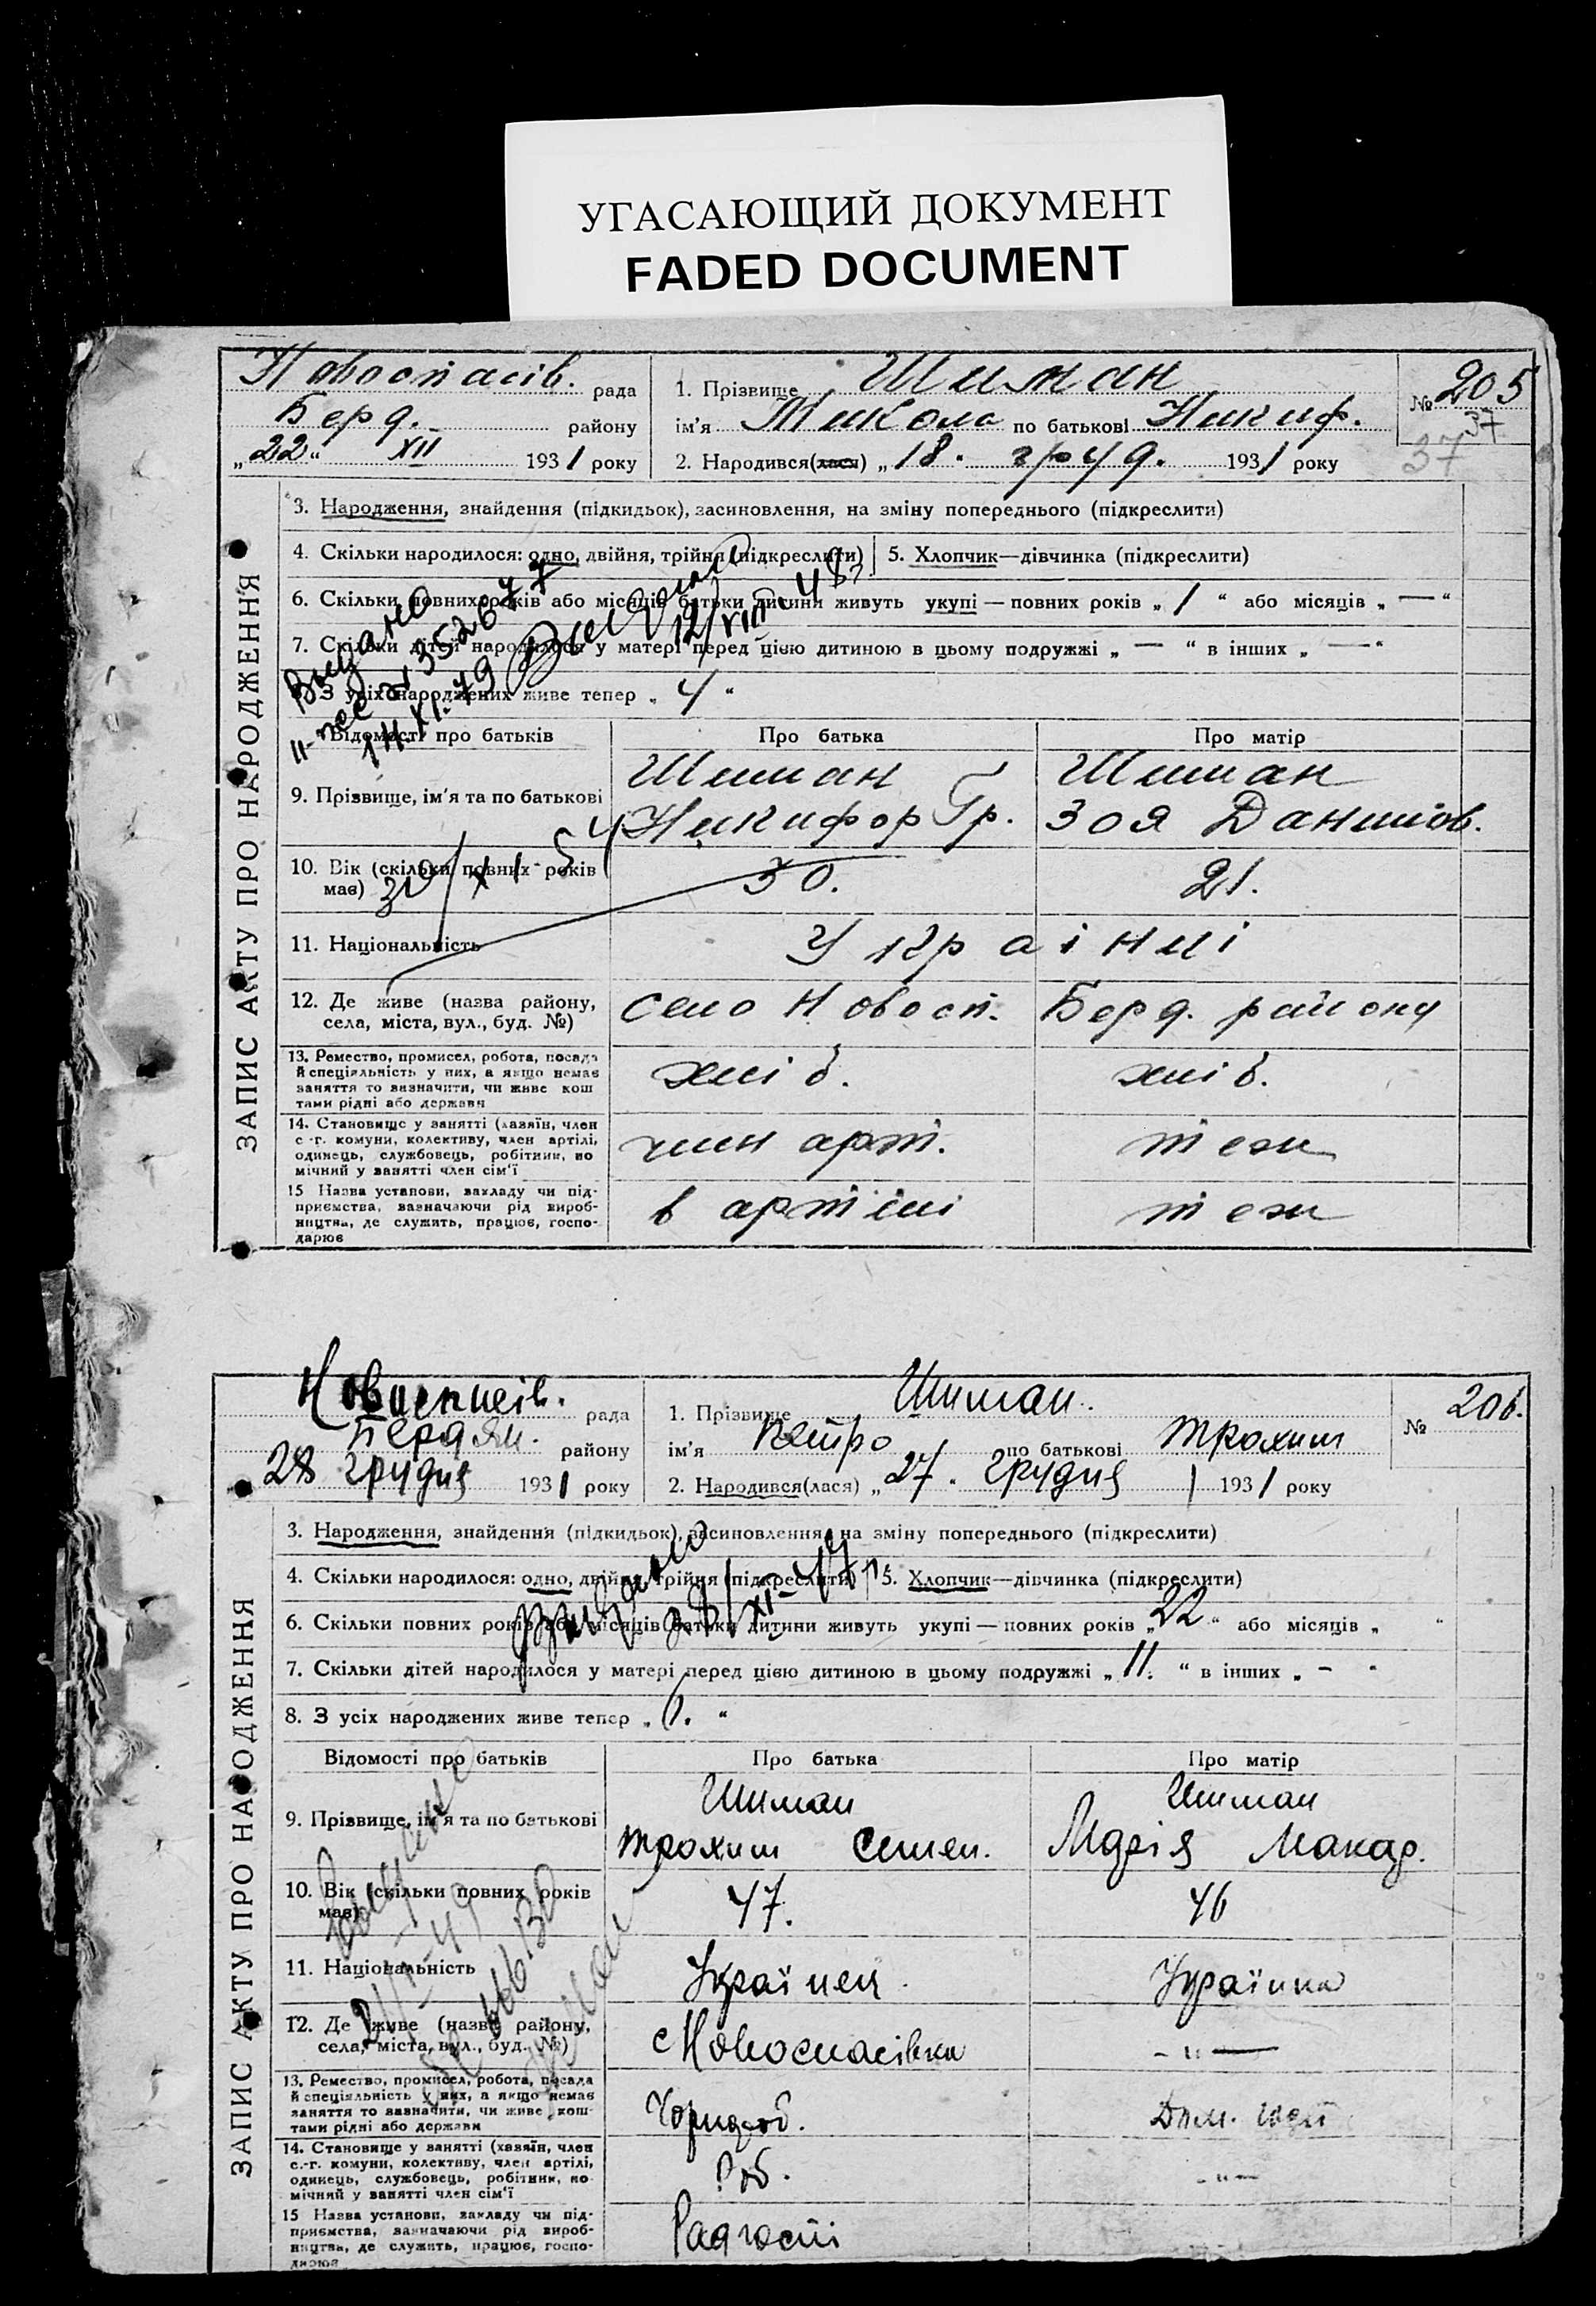 УГАСАЮЩИЙ ДОКУМЕНТ
FADED DOCUMENT
Новоспасів. рада
Берд. району
„22“ XII 1931 року
1. Прізвище Шиман
ім'я Микола по батькові Никиф.
2. Народився(лася) „18. груд. 1931 року
№ 205
37
37
ЗАПИС АКТУ ПРО НАРОДЖЕННЯ
3. Народження, знайдення (підкидьок), засиновлення, на зміну попереднього (підкреслити)
4. Скільки народилося: одно, двійня, трійня (підкреслити) 5. Хлопчик—дівчинка (підкреслити)
6. Скільки повних років або місяців батьки дитини живуть укупі — повних років „ 1 “ або місяців „ — “
7. Скільки дітей народилося у матері перед цією дитиною в цьому подружжі „ — “ в інших „ — “
8. З усіх народжених живе тепер „ 4 “
Выдано
352677
14.XI.79
12/VIII-48
Відомості про батьків Про батька Про матір
9. Прізвище, ім'я та по батькові
Шиман
Никифор Гр.
Шиман
Зоя Данилов.
10. Вік (скільки повних років
має) 30. 21.
30/XI-54
11. Національність Українці
12. Де живе (назва району,
села, міста, вул., буд. №)
село Новосп. Берд. району
13. Ремество, промисел, робота, посада
й спеціяльність у них, а якщо немає
заняття то визначити, чи живе кош
тами рідні або держави
хліб. хліб.
14. Становище у занятті (хазяїн, член
с.-г. комуни, колективу, член артілі,
одинець, службовець, робітник, по
мічний у занятті член сім'ї
член арт. теж
15 Назва установи, закладу чи під-
приємства, зазначаючи рід вироб-
ництва, де служить, працює, госпо-
дарює
в артілі теж
Новоспасів. рада
Бердян. району
28 грудня 1931 року
1. Прізвище Шиман.
ім'я Петро по батькові Трохим
2. Народився(лася) „27. грудня 1931 року
№ 206.
ЗАПИС АКТУ ПРО НАРОДЖЕННЯ
3. Народження, знайдення (підкидьок), засиновлення, на зміну попереднього (підкреслити)
4. Скільки народилося: одно, двійня, трійня (підкреслити) 5. Хлопчик—дівчинка (підкреслити)
6. Скільки повних років або місяців батьки дитини живуть укупі — повних років „22“ або місяців „ “
7. Скільки дітей народилося у матері перед цією дитиною в цьому подружжі „11. “ в інших „ - “
8. З усіх народжених живе тепер „ “
Відомості про батьків Про батька Про матір
9. Прізвище, ім'я та по батькові
Шиман
Трохим Семен.
Шиман
Марія Макар.
10. Вік (скільки повних років
має) 47. 46
11. Національність Українец. Українка
12. Де живе (назва району,
села, міста, вул., буд. №)
с Новоспасівка -"-
13. Ремество, промисел, робота, посада
й спеціяльність у них, а якщо немає
заняття то зазначити, чи живе кош-
тами рідні або держави
Чорнороб. Дом. госп
14. Становище у занятті (хазяїн, член
с.-г. комуни, колективу, член артілі,
одинець, службовець, робітник, по
мічний у занятті член сім'ї
Роб. -"-
15 Назва установи, закладу чи під-
приємства, зазначаючи рід вироб-
ництва, де служить, працює, госпо-
дарює
Радгоспі